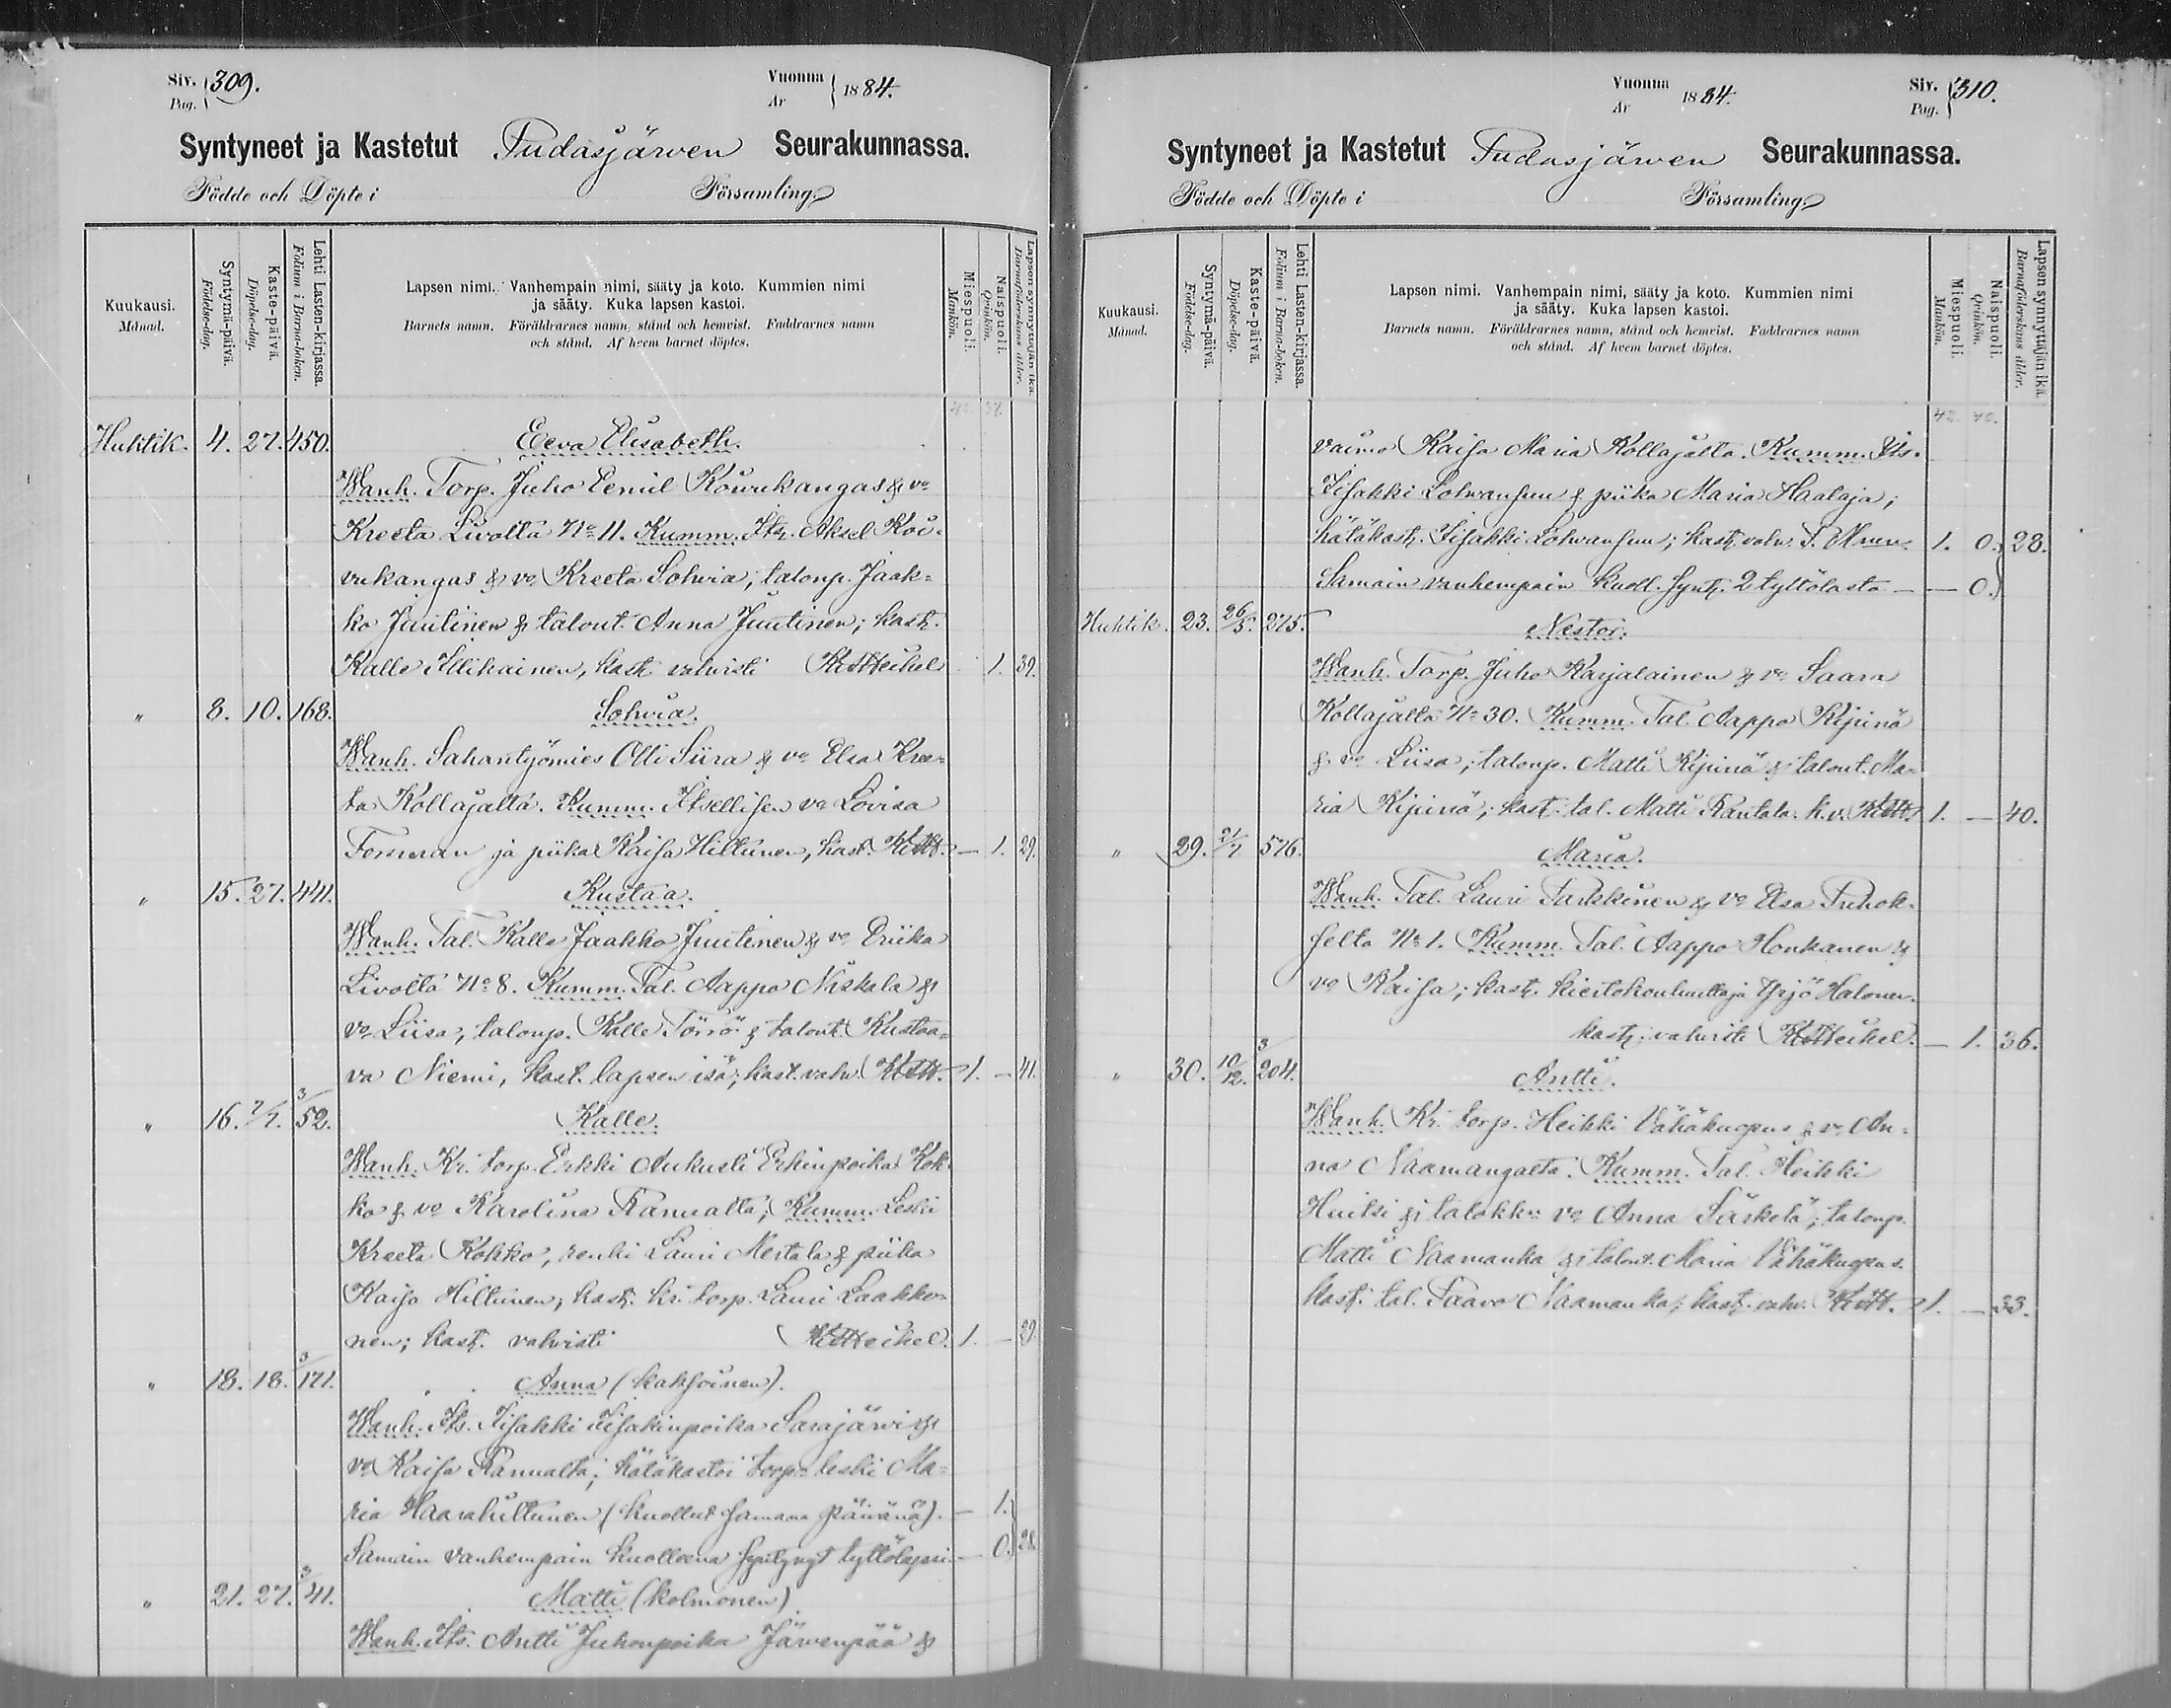 Siv. Pag. 309. Vuonna År 1884.
Syntyneet ja Kastetut Pudasjärven Seurakunnassa.
Födde och Döpte i Församling.
Kuukausi. Månad. Syntymä-päivä. Födelse-dag. Kaste-päivä. Döpelse-dag. Lehti Lasten-kirjassa. Folium i Barna-boken. Lapsen nimi. Vanhempain nimi, sääty ja koto. Kummien nimi ja sääty. Kuka lapsen kastoi. Barnets namn. Föräldrarnes namn, stånd och hemvist. Faddrarnes namn och stånd. Af hvem barnet döptes. Miespuoli. Mankön. Naispuoli. Qvinkön. Lapsen synnyttäjän ikä. Barnaföderskans ålder.
Huhtik. 4. 27. 450. Eeva Elisabeth.
Wanh. Torp. Juho Eemil Kourukangas & vo
Kreeta Livolta No 11. Kumm. Its. Aksel Kou-
rukangas & vo Kreeta Sohvia, talonp. Jaak-
ko Juutinen & talont. Anna Juutinen; kast.
Kalle Illikainen, kast. vahvisti K.W. Heikel 1. 39.
" 8. 10. 168. Sohvia.
Wanh. Sahantyömies Olli Siira & vo Elsa Kree-
ta Kollajalta. Kumm. Itsellisen vo Lovisa
Forsman ja piika Kaisa Hiltunen, kast. — 1. 29.
" 15. 27. 441. Kustaa.
Wanh. Tal. Kalle Jaakko Juutinen & vo Eriika
Livolta No 8. Kumm. Tal. Aappo Niskala &
vo Liisa, talonp. Kalle Törrö & talont. Kustaa-
va Niemi, kast. lapsen isä; kast. vahv. 1. — 41.
" 16. 7/7. 3/52. Kalle.
Wanh. Kr. torp. Erkki Aukusti Erkinpoika Kok-
ko & vo Karolina Kanualta; Kumm. Leski
Kreeta Kokko, renki Lauri Mertala & piika
Kaisa Hiltunen; kast. kr. torp. Lauri Laakko-
nen; kast. vahvisti Heikel. 1. — 29.
" 18. 18. 3/171. Anna (kaksoinen).
Wanh. Its. Iisakki Iisakinpoika Sarajärvi &
vo Kaisa Panualta; hätäkastoi torp. leski Ma-
ria Haarahiltunen (kuollut samana päivänä). — 1.
Samain vanhempain kuolleena syntynyt tyttölapsi — 0. 28.
" 21. 27. 3/41. Matti (kolmonen)
Wanh. Its. Antti Juhonpoika Järvenpää &
Vuonna År 1884. Siv. Pag. 310.
Syntyneet ja Kastetut Pudasjärven Seurakunnassa.
Födde och Döpte i Församling.
Kuukausi. Månad. Syntymä-päivä. Födelse-dag. Kaste-päivä. Döpelse-dag. Lehti Lasten-kirjassa. Folium i Barna-boken. Lapsen nimi. Vanhempain nimi, sääty ja koto. Kummien nimi ja sääty. Kuka lapsen kastoi. Barnets namn. Föräldrarnes namn, stånd och hemvist. Faddrarnes namn och stånd. Af hvem barnet döptes. Miespuoli. Mankön. Naispuoli. Qvinkön. Lapsen synnyttäjän ikä. Barnaföderskans ålder.
vaimo Kaisa Maria Kollajalta. Kumm. Its.
Iisakki Lohvansuu & piika Maria Haalaja;
hätäkast. Iisakki Lohvansuu; kast. vahv. 1. 0. 28.
Samain vanhempain kuoll. synt. 2 tyttölasta — — 0.
Huhtik. 23. 26/5. 275. Nestor.
Wanh. Torp. Juho Karjalainen & vo Saara
Kollajalta No 30. Kumm. Tal. Aappo Kipinä
& vo Liisa, talonp. Matti Kipinä & talont. Ma-
ria Kipinä; kast. tal. Matti Rantala. k.v. 1. — 40.
" 29. 21/7. 576. Maria.
Wanh. Tal. Lauri Parkkinen & vo Elsa Puhok-
selta No 1. Kumm. Tal. Aappo Honkanen &
vo Kaisa; kast. kiertokouluttaja Yrjö Halonen.
kast. vahvisti Heikel. — 1. 36.
" 30. 10/12. 3/204. Antti.
Wanh. Kr. torp. Heikki Vähäkuopus & vo An-
na Naamangalta. Kumm. Tal. Heikki
Huitsi & talokk:n vo Anna Särkelä; talonp.
Matti Naamanka & talont. Maria Vähäkuopus.
kast. tal. Paavo Naamanka; kast. vahv. 1. — 33.